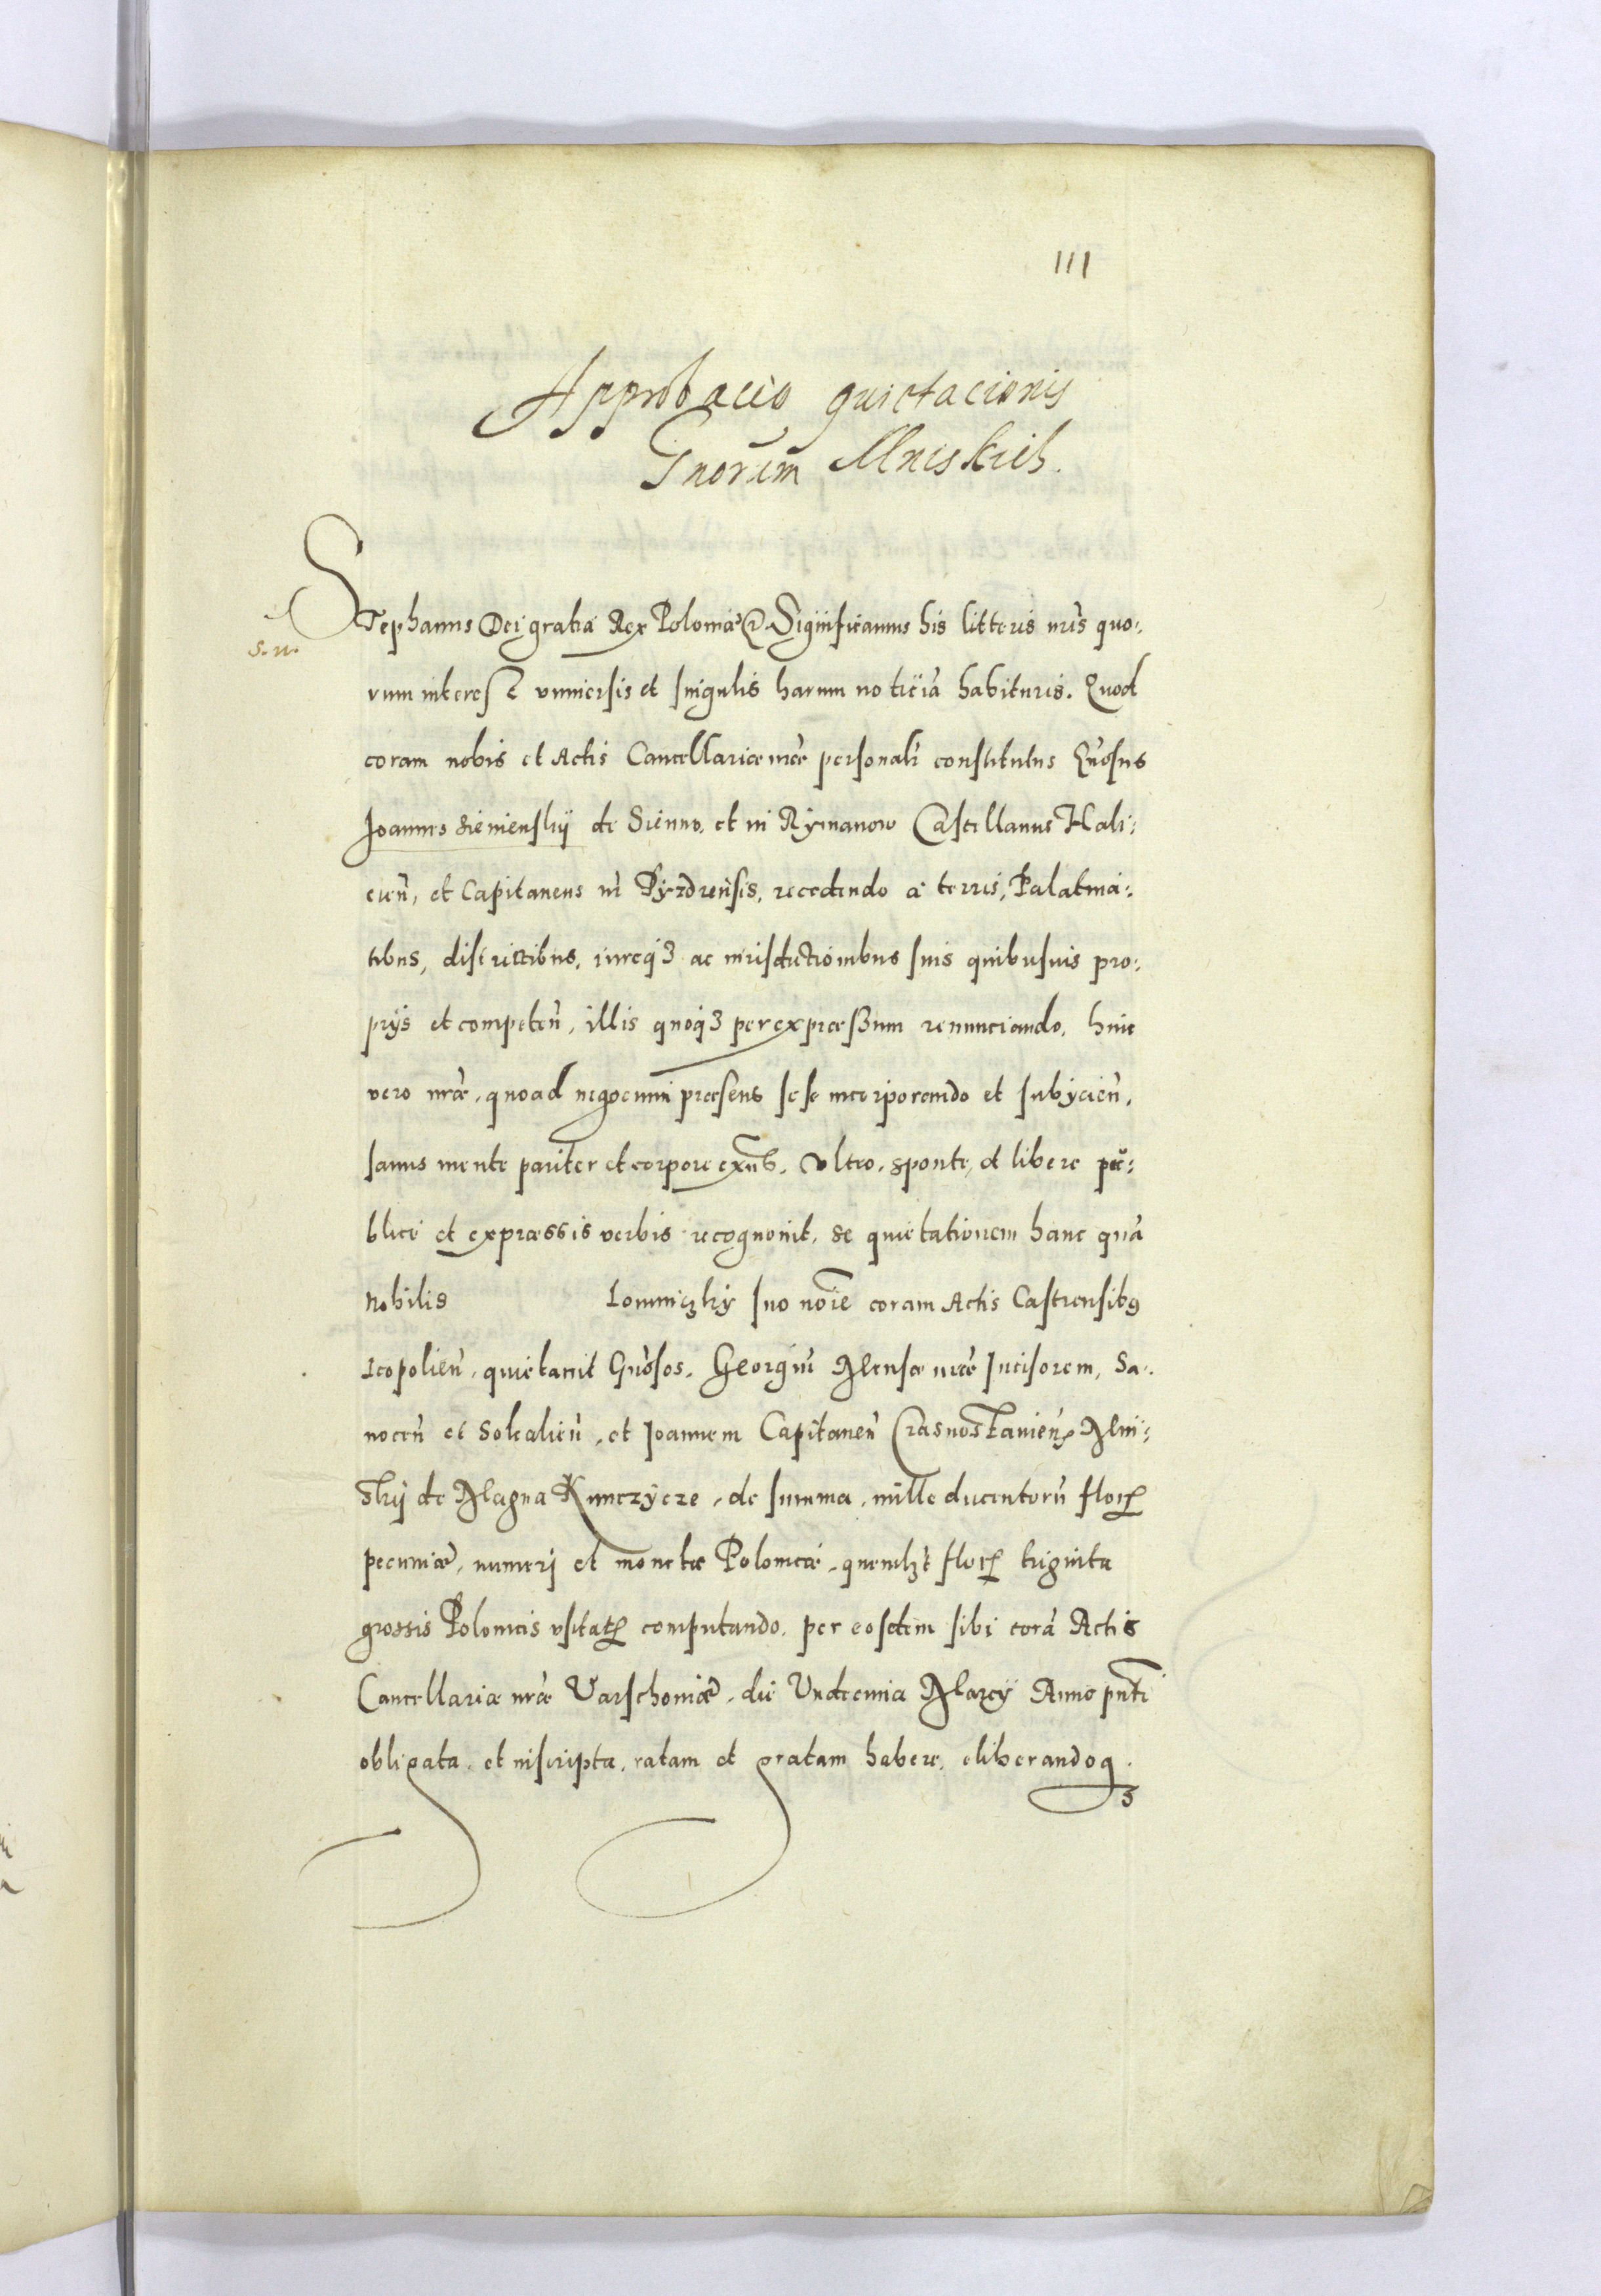 111
Approbacio quictacionis
Gnorum Mniskich.
Stephanus Dei gratia Rex Poloniæ &. Significamus his litteris nris quo:
s. n.
rum interest vniuersis et singulis harum noticia habituris. Quod
coram nobis et Actis Cancellariæ nræ personalr constitutus Gnosus
Joannes Sienienskij de Sienno, et in Rymanow Castellanus Hali:
cien, et Capitaneus nr Pyzdrensis, recedendo a terris, Palatina:
tibus, districtibus, iureq3 ac iurisdictionibus suis quibusuis pro:
prijs et competen, illis quoq3 per expræssum renunciando, huic
vero nræ, quoad negocium præsens se se incorporando et subijcien,
sanus mente pariter et corpore exns, vltro, sponte, et libere pu:
blice et expræssis verbis recognouit, se quietationem hanc qua
Nobilis Lomniczky suo noie coram Actis Castrensibus
Leopolien, quietauit Gnosos, Georgiu Mensæ nræ Incisorem, Sa:
nocen et Sokalien, et Joannem Capitaneu Crasnostanien, Mni:
skij de Magna Kunczycze, de summa, mille ducentoru flor
pecuniæ, numeri et monetæ Polonicæ, quemlzt flor triginta
grossis Polonicis vsitat computando, per eosdem sibi cora Actis
Cancellariæ nræ Varschouiæ, die Vndecima Marcij Anno pnti
obligata, et inscripta, ratam et gratam habere, eliberandoq3